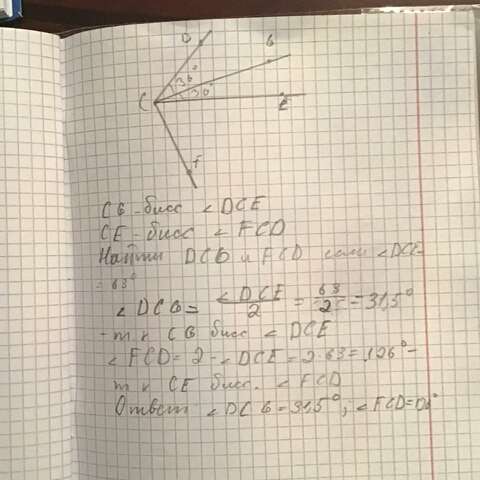 D
B
C
30°
30°
E
F
CB - бисс ∠DCE
CE - бисс ∠FCD
Найти DCB и FCD если ∠DCE
= 63°
∠DCB = ∠DCE/2 = 63/2 = 31,5°
- т к CB бисс ∠DCE
∠FCD = 2 · ∠DCE = 2 · 63 = 126° -
т к CE бисс. ∠FCD
Ответ ∠DCB = 31,5°, ∠FCD =